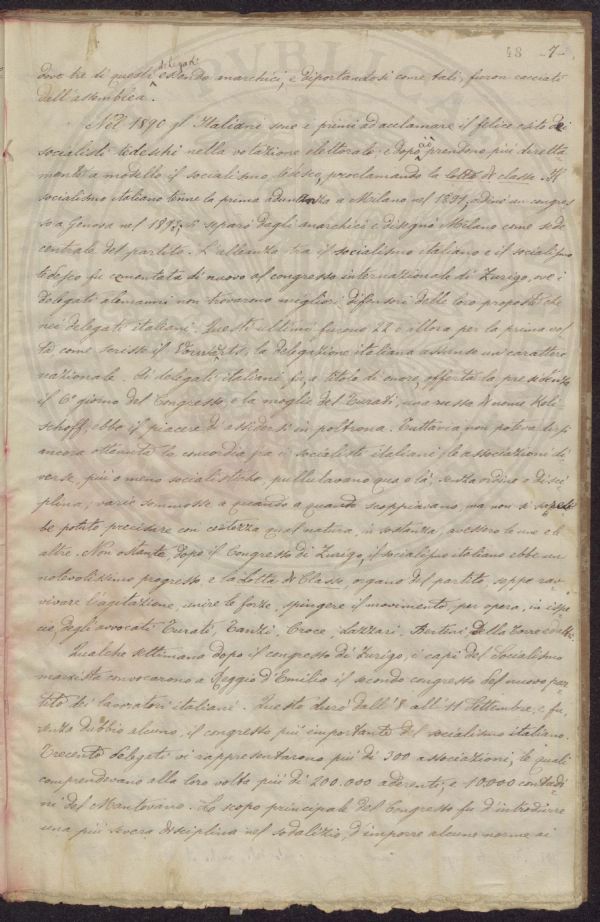 48 -7-
dove tre di questi delegati essendo anarchici, e diportandosi come tali, furon cacciati
dall'assemblea.
Nel 1890 gl'Italiani sono i primi ad acclamare il felice esito dei
socialisti tedeschi nella votazione elettorale e dopo ciò prendono più diretta-
mente a modello il socialismo tedesco, proclamando la lotta di classe. Il
socialismo italiano tenne la prima adunanza a Milano nel 1891, ordinò un congres
so a Genova nel 1892, si separò dagli anarchici e disegnò Milano come sede
centrale del partito. L'alleanza tra il socialismo italiano e il socialismo
tedesco fu cementata di nuovo al congresso internazionale di Zurigo, ove i
delegati alemanni non trovarono migliori difensori delle loro proposte che
nei delegati italiani. Questi ultimi furono 22 e allora per la prima vol
ta come scrisse il Vorwärts, la delegazione italiana assunse un carattere
nazionale. Ai delegati italiani fu, a titolo di onore, offerta la presidenza
il 6° giorno del Congresso, e la moglie del Turati, una russa di nome Koli-
schoff, ebbe il piacere di assidersi in poltrona. Tuttavia non poteva dirsi
ancora ottenuta la concordia fra i socialisti italiani; le associazioni di-
verse, più o meno socialistiche, pullulavano qua e là, senza ordine o disci
plina; varie sommosse a quando a quando scoppiavano, ma non si sareb
be potuto precisare con certezza qual natura, in sostanza, avessero le une e le
altre. Non ostante, dopo il Congresso di Zurigo, il socialismo italiano ebbe un
notevolissimo progresso e la Lotta di Classe, organo del partito, seppe rav-
vivare l'agitazione, unire le forze, spingere il movimento, per opera, in ispe
cie, degli avvocati Turati, Tanzi, Croce, Lazzari, Bertini, Della Torre
Qualche settimana dopo il congresso di Zurigo, i capi del Socialismo
marxista convocarono a Reggio d'Emilia il secondo congresso del nuovo par-
tito dei lavoratori italiani. Questo durò dall'8 all'11 Settembre, e fu,
senza dubbio alcuno, il congresso più importante del socialismo italiano.
Trecento delegati vi rappresentarono più di 300 associazioni, le quali
comprendevano alla loro volta più di 200.000 aderenti, e 10.000 contadi
ni del Mantovano. Lo scopo principale del Congresso fu d'introdurre
una più severa disciplina nel sodalizio, d'imporre alcune norme ai